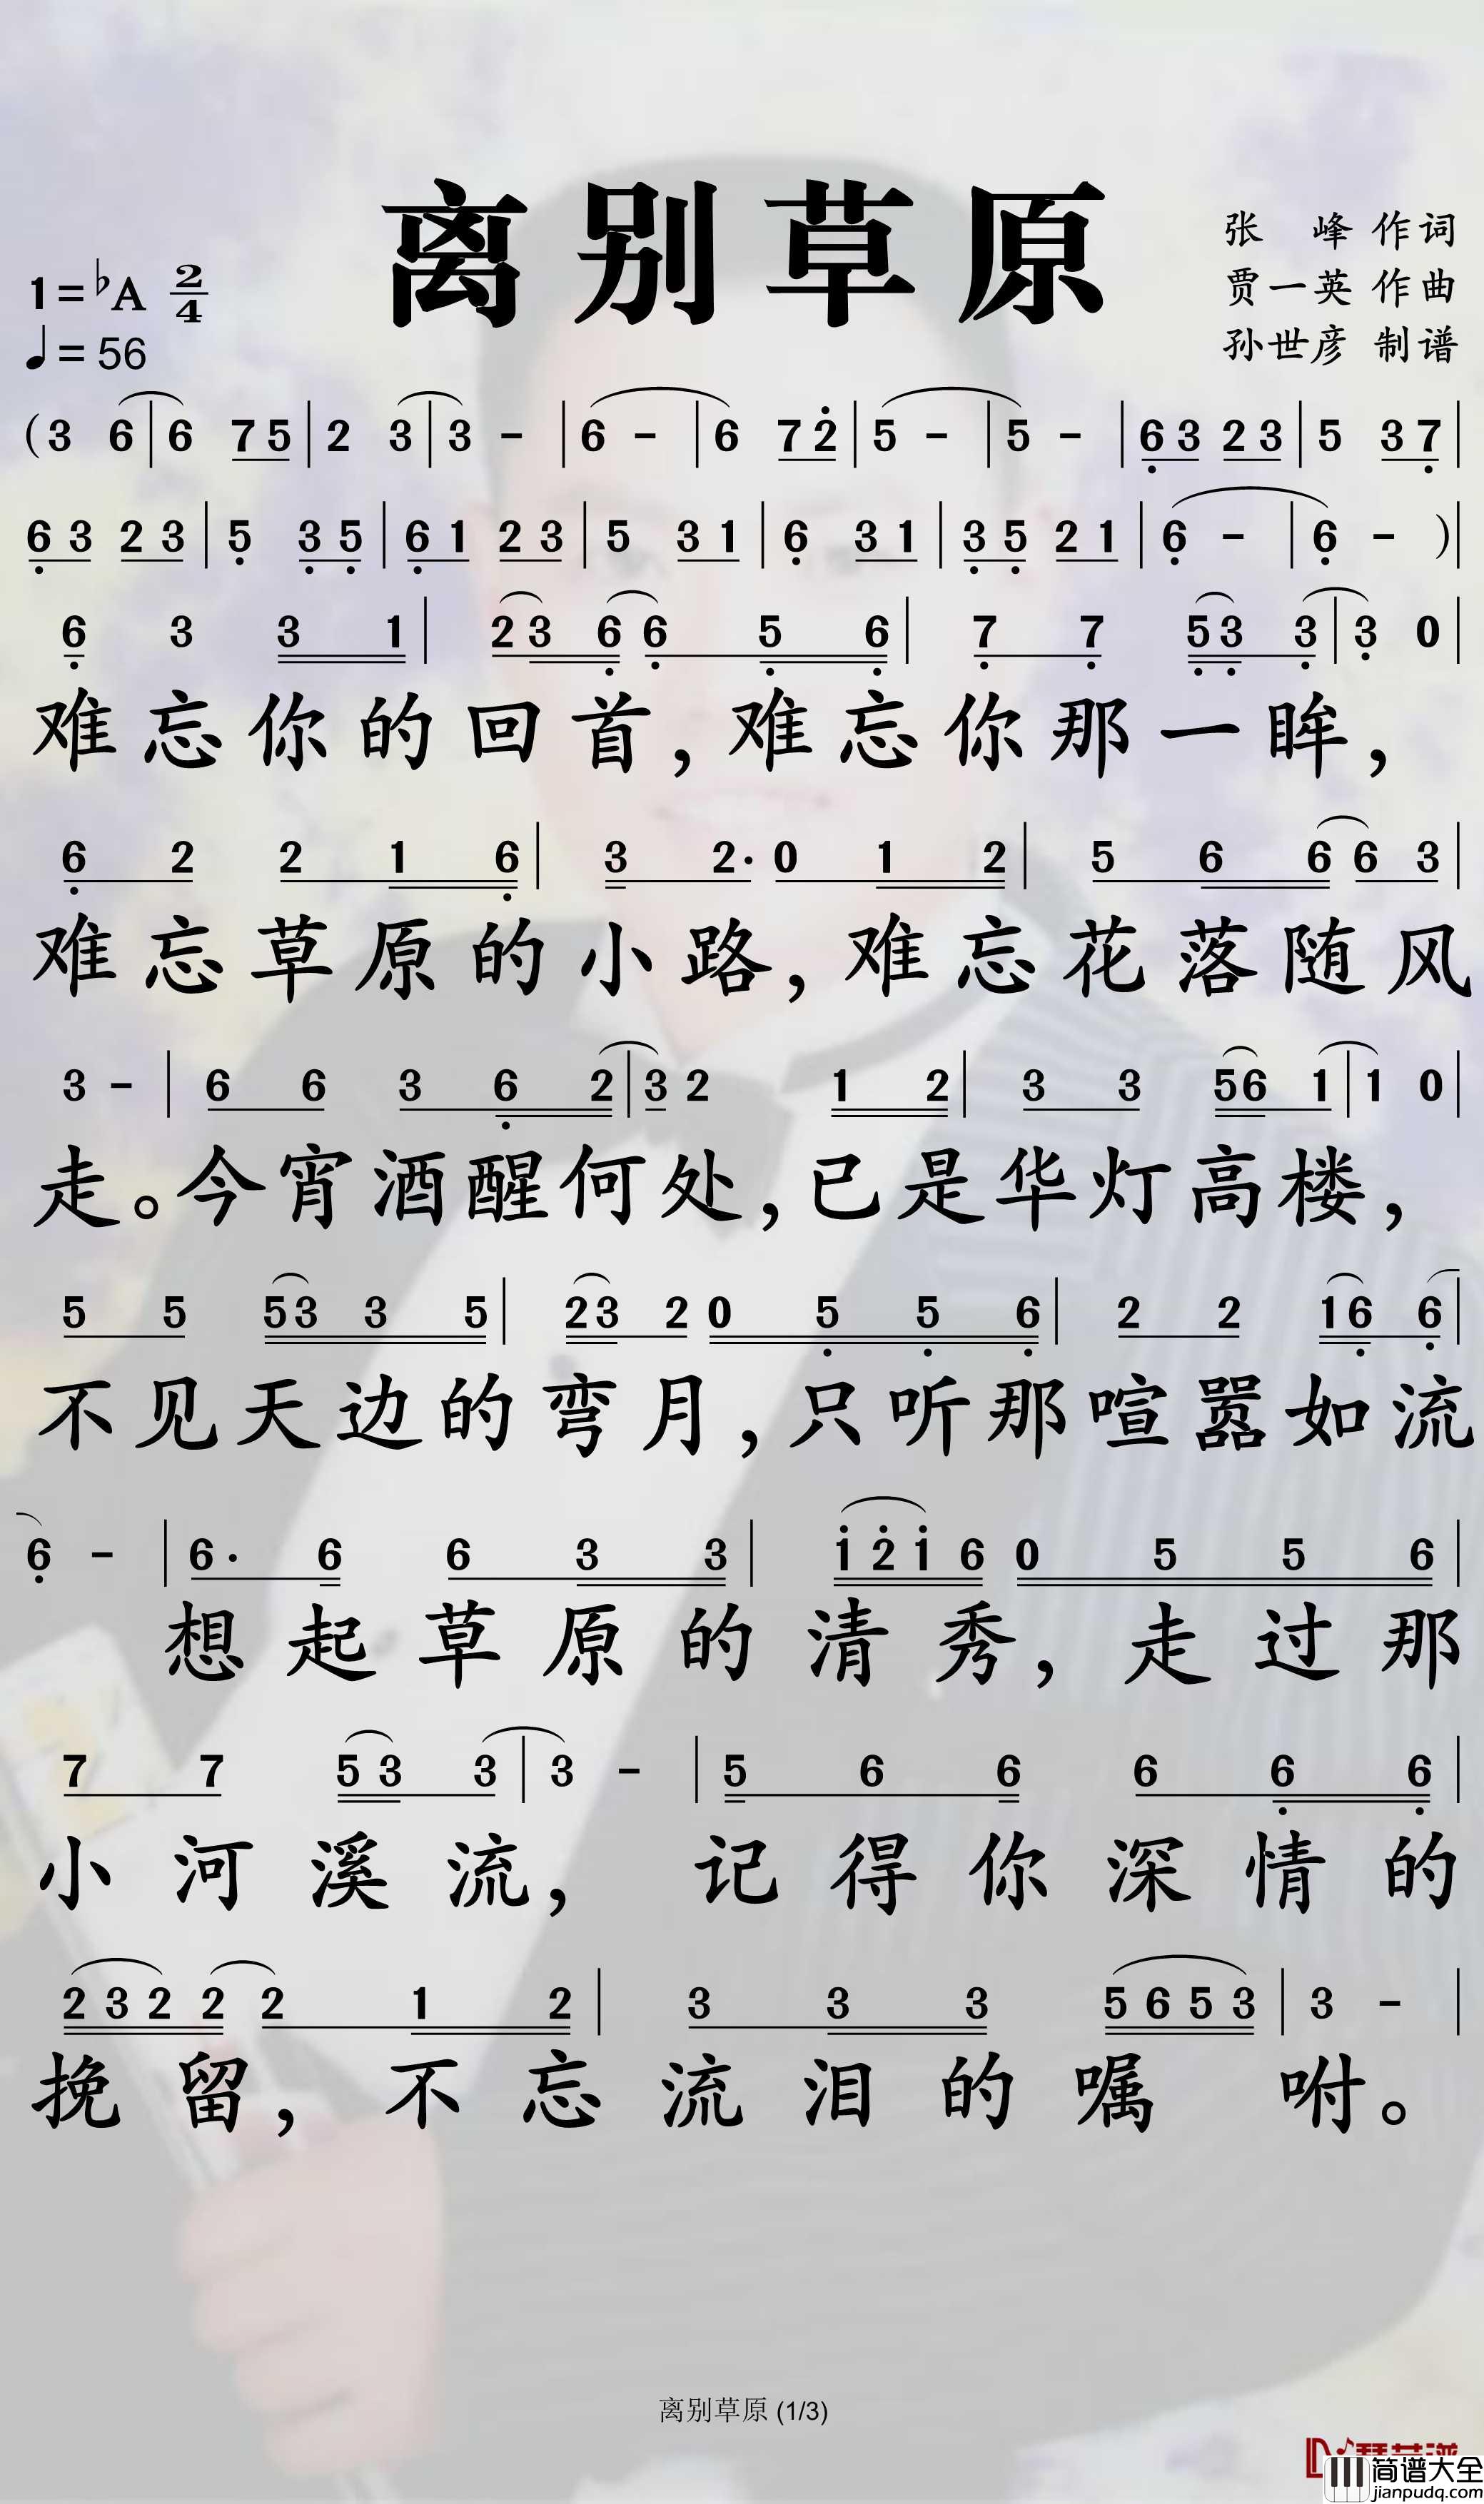 离别草原
张 峰 作词
贾一英 作曲
孙世彦 制谱
1=♭A 2/4
♩=56
(3 6 | 6 7 5 | 2 3 | 3 - | 6 - | 6 7 2̇ | 5 - | 5 - | 6̣ 3 2 3 | 5 3 7̣ |
6̣ 3 2 3 | 5̣ 3̣ 5̣ | 6̣ 1 2 3 | 5 3 1 | 6̣ 3 1 | 3̣ 5̣ 2 1 | 6̣ - | 6̣ - ) |
6̣ 3 3 1 | 2 3 6̣ 6̣ 5̣ 6̣ | 7̣ 7̣ 5̣ 3̣ 3̣ | 3̣ 0 |
难忘你的回首，难忘你那一眸，
6̣ 2 2 1 6̣ | 3 2· 0 1 2 | 5 6 6 6 3 |
难忘草原的小路，难忘花落随风
3 - | 6 6 3 6̣ 2 | 3 2 1 2 | 3 3 5 6 1 | 1 0 |
走。今宵酒醒何处，已是华灯高楼，
5 5 5 3 3 5 | 2 3 2 0 5̣ 5̣ 6̣ | 2 2 1 6̣ 6̣ |
不见天边的弯月，只听那喧嚣如流
6̣ - | 6· 6 6 3 3 | 1̇ 2̇ 1̇ 6 0 5 5 6 |
想起草原的清秀，走过那
7 7 5 3 3 | 3 - | 5 6 6 6 6̣ 6̣ |
小河溪流，记得你深情的
2 3 2 2 2 1 2 | 3 3 3 5 6 5 3 | 3 - |
挽留，不忘流泪的嘱咐。
离别草原 (1/3)
简谱大全
jianpudq.com